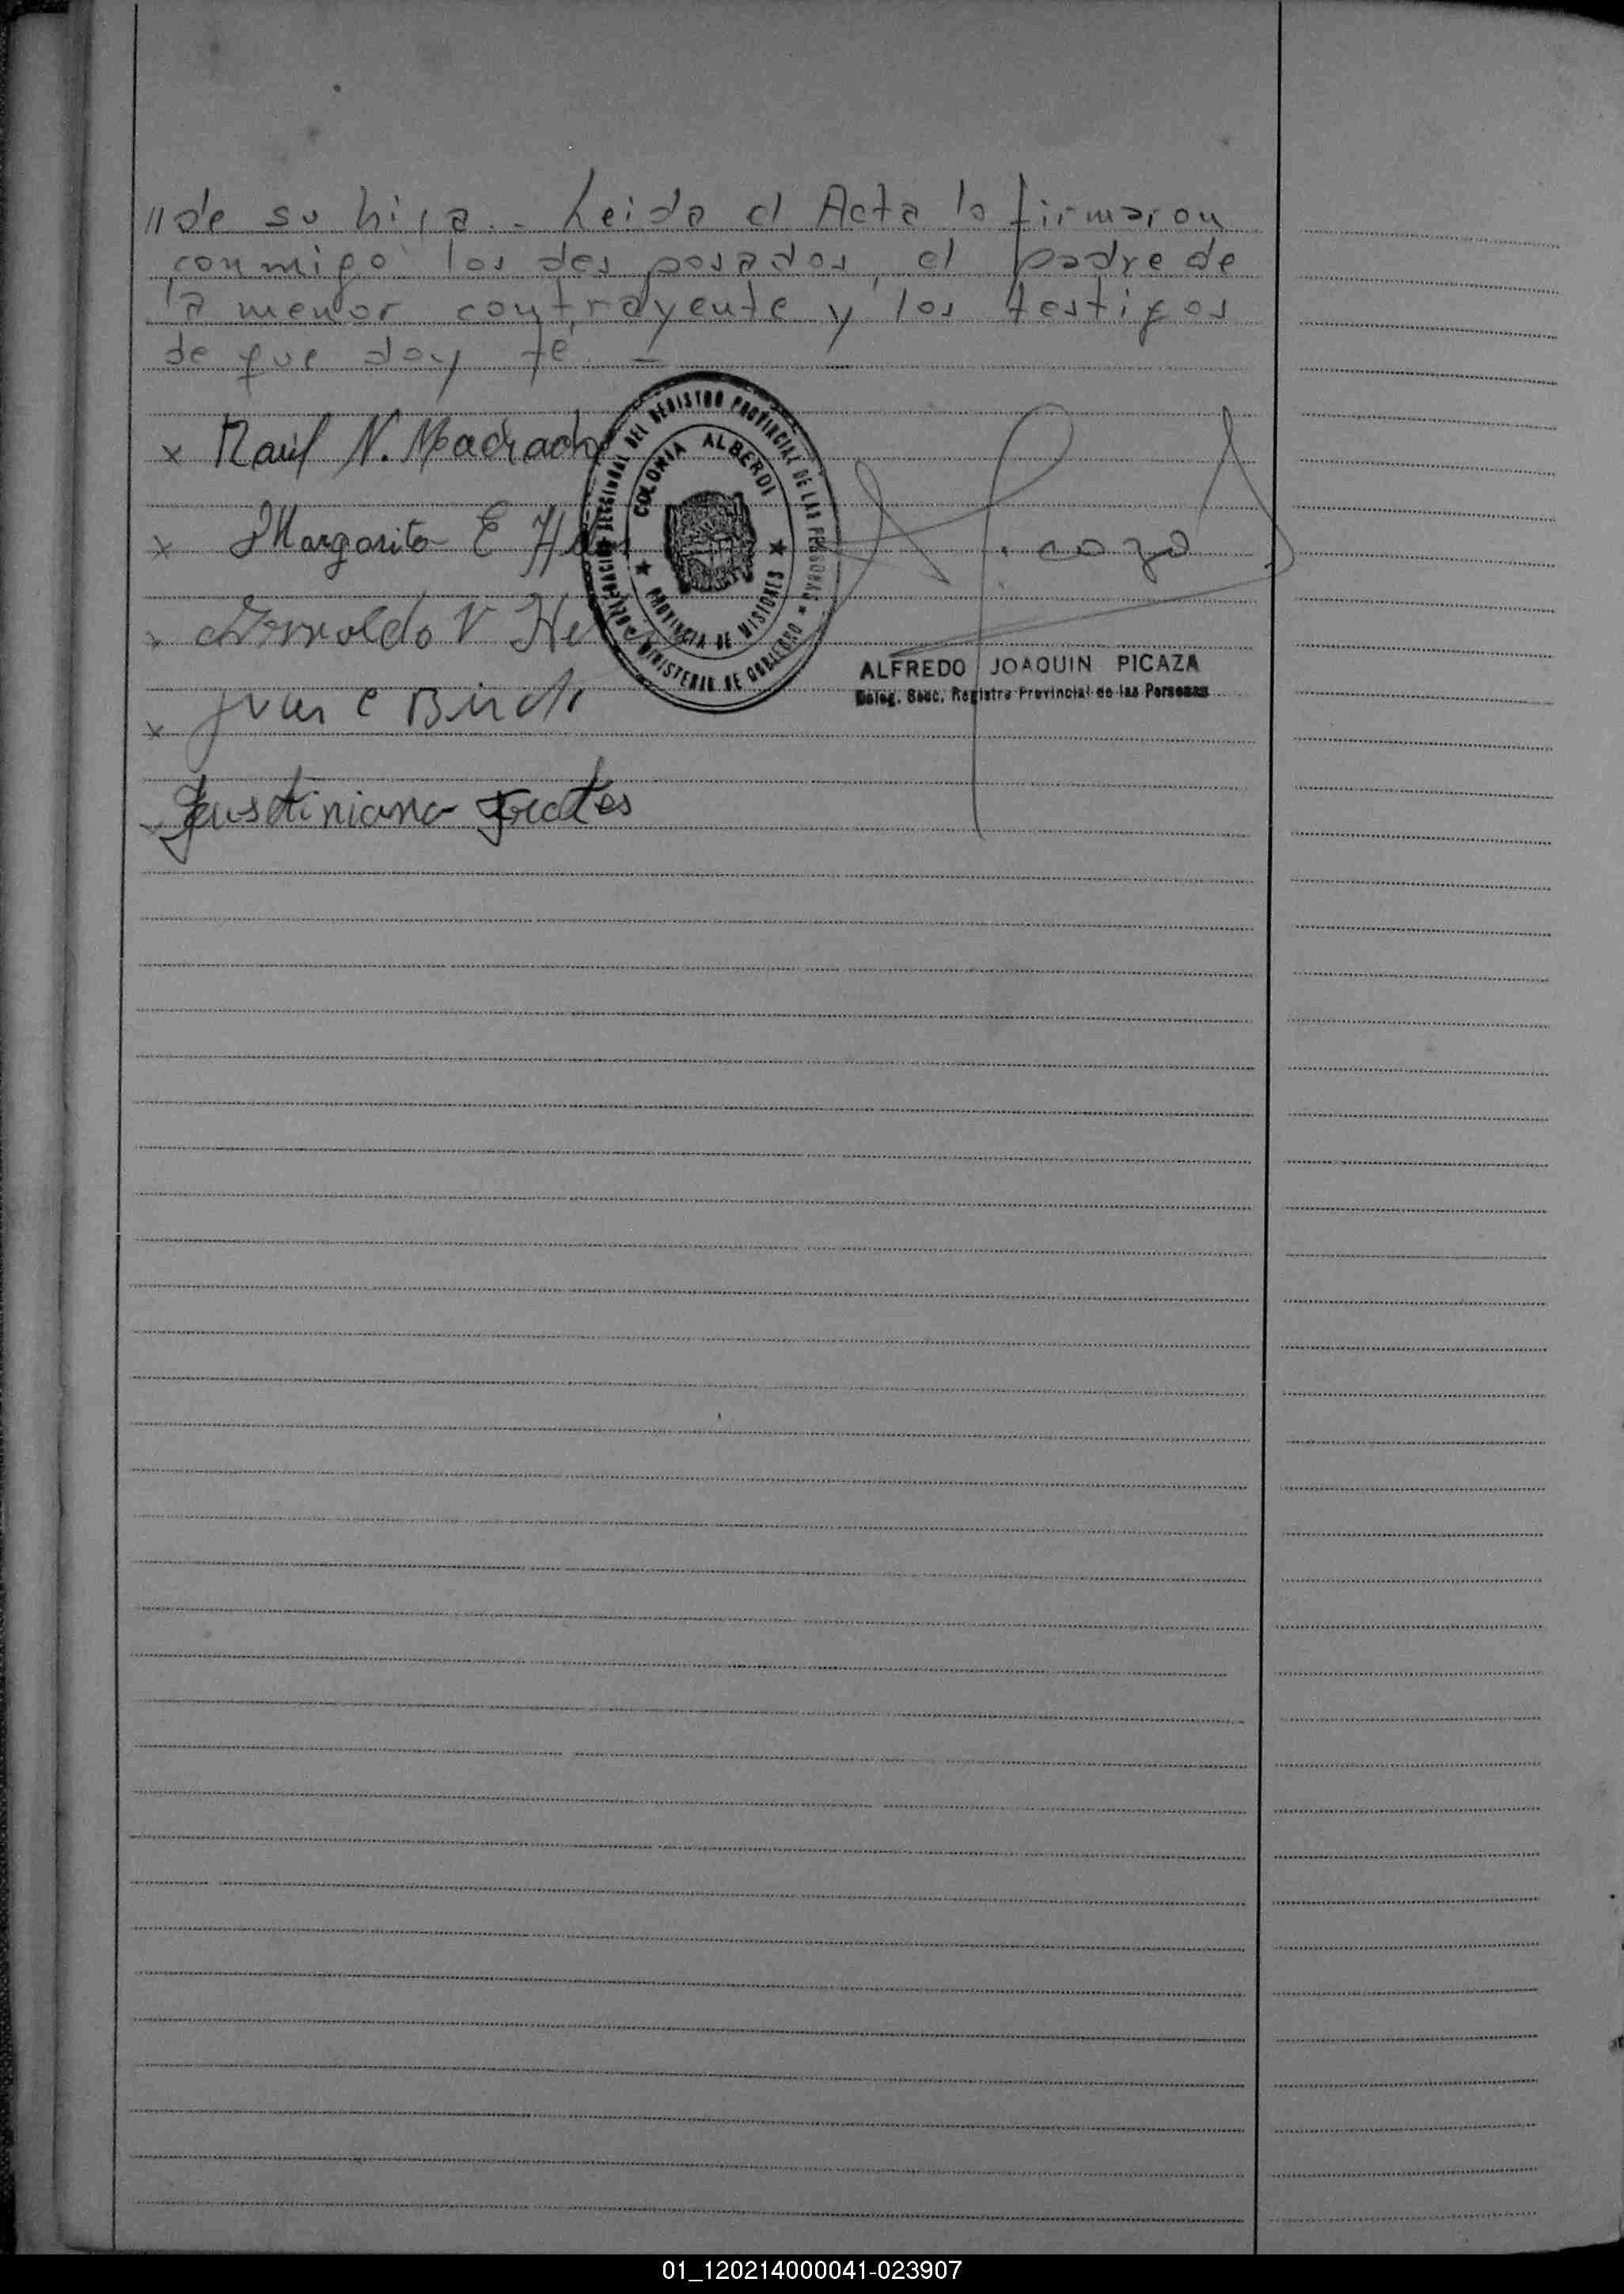 "de su hija.- Leida el Acta la firmaron
conmigo los desposados, el padre de
la menor contrayente y los testigos
de que doy fe.=
x Raúl N. Machado
x Margarita E
x Arnoldo V
x Juan C
x Justiniana Frates
Picaza
DELEGACION SECCIONAL DEL REGISTRO PROVINCIAL DE LAS PERSONAS ★
MINISTERIO DE GOBIERNO
COLONIA ALBERDI
★ PROVINCIA DE MISIONES ★
ALFREDO JOAQUIN PICAZA
Deleg. Secc. Registro Provincial de las Personas
01_120214000041-023907